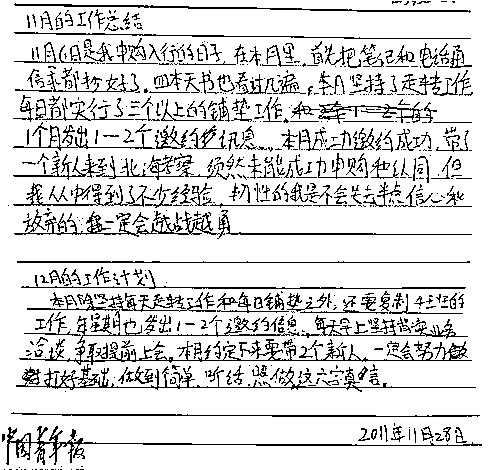 11月的工作总结
11月6日是我申购入行的日子,在本月里,首先把笔记和电话通
信录都抄好了,四本天书也看过几遍,本月坚持了走转工作
每日都实行了三个以上的铺垫工作。
1个月发出1一2个邀约讯息。本月成功邀约成功,带了
一个新人来到北海考察,须然未能成功申购和认同,但
我从中得到了不少经验,韧性的我是不会失去半点信心和
放弃的,我一定会越战越勇
12月的工作计划
本月除坚持每天走转工作和每日铺垫之外,还要复制4主性的
工作,每星期也发出1一2个邀约信息,每天早上坚持当实业务
洽谈,争取提前上会,本月约定下来要带2个新人,一定会努力做
打好基础,做到简单,听话,照做这六字真言。
2011年11月28日
中国青年报